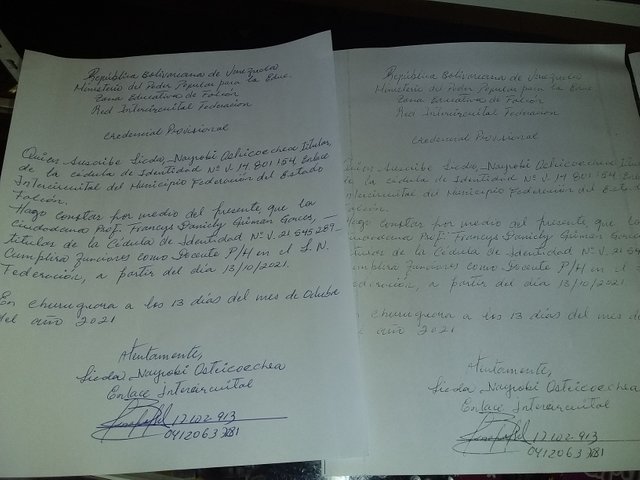 República Bolivariana de Venezuela
Ministerio del Poder Popular para la Educ.
Zona Educativa de Falcón
Red Intercircuital Federación
Credencial Provisional
Quien Suscribe Licda. Nayrobi Ostricoechea titular,
de la cédula de Identidad Nº V. 17 801 154 Enlace
Intercircuital del Municipio Federación del Estado
Falcón.
Hago constar por medio del presente, que la
Ciudadana Prof. Francys Daniely Guzmán Garces,
titular de la Cédula de Identidad Nº V. 21 545 289
Cumplirá funciones como Docente P/H en el J. N.
Federación, a partir del día 13/10/2021.
En Churuguara a los 13 días del mes de Octubre
del año 2021
Atentamente,
Licda. Nayrobi Ostricoechea
Enlace Intercircuital
17 102 913
0412063 7281
República Bolivariana de Venezuela
Ministerio del Poder Popular para la Educ
Zona Educativa de Falcón
Red Intercircuital Federación
Credencial Provisional
Suscribe Licda. Nayrobi Ostricoechea
la cédula de Identidad Nº V. 17 801 154
Intercircuital del Municipio Federación del
Hago constar por medio del presente que
Prof. Francys Daniely Guzmán
de la Cédula de Identidad Nº V.
Cumplirá funciones como Docente P/H en el
a partir del día 13/10/2021.
Churuguara a los 13 días del mes de
año 2021
Atentamente,
Licda. Nayrobi Ostricoechea
Enlace Intercircuital
17 102 913
0412063 7281